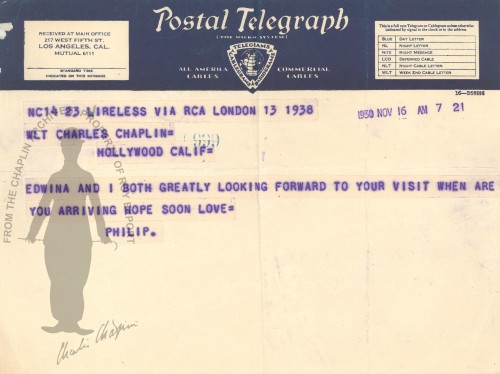 Postal Telegraph
(THE MACKAY SYSTEM)
TELEGRAMS
ALL AMERICA CABLES
COMMERCIAL CABLES
RECEIVED AT MAIN OFFICE
217 WEST FIFTH ST.
LOS ANGELES, CAL.
MUTUAL 6111
STANDARD TIME
INDICATED ON THIS MESSAGE
This is a full rate Telegram or Cablegram unless otherwise indicated by signal in the check or in the address.
BLUE DAY LETTER
NL NIGHT LETTER
NITE NIGHT MESSAGE
LCO DEFERRED CABLE
NLT NIGHT CABLE LETTER
WLT WEEK END CABLE LETTER
NC14 23 WIRELESS VIA RCA LONDON 13 1938
1930 NOV 16 AM 7 21
WLT CHARLES CHAPLIN=
HOLLYWOOD CALIF=
EDWINA AND I BOTH GREATLY LOOKING FORWARD TO YOUR VISIT WHEN ARE
YOU ARRIVING HOPE SOON LOVE=
PHILIP.
FROM THE CHAPLIN ARCHIVES
PROPERTY OF ROY EXPORT
Charlie Chaplin